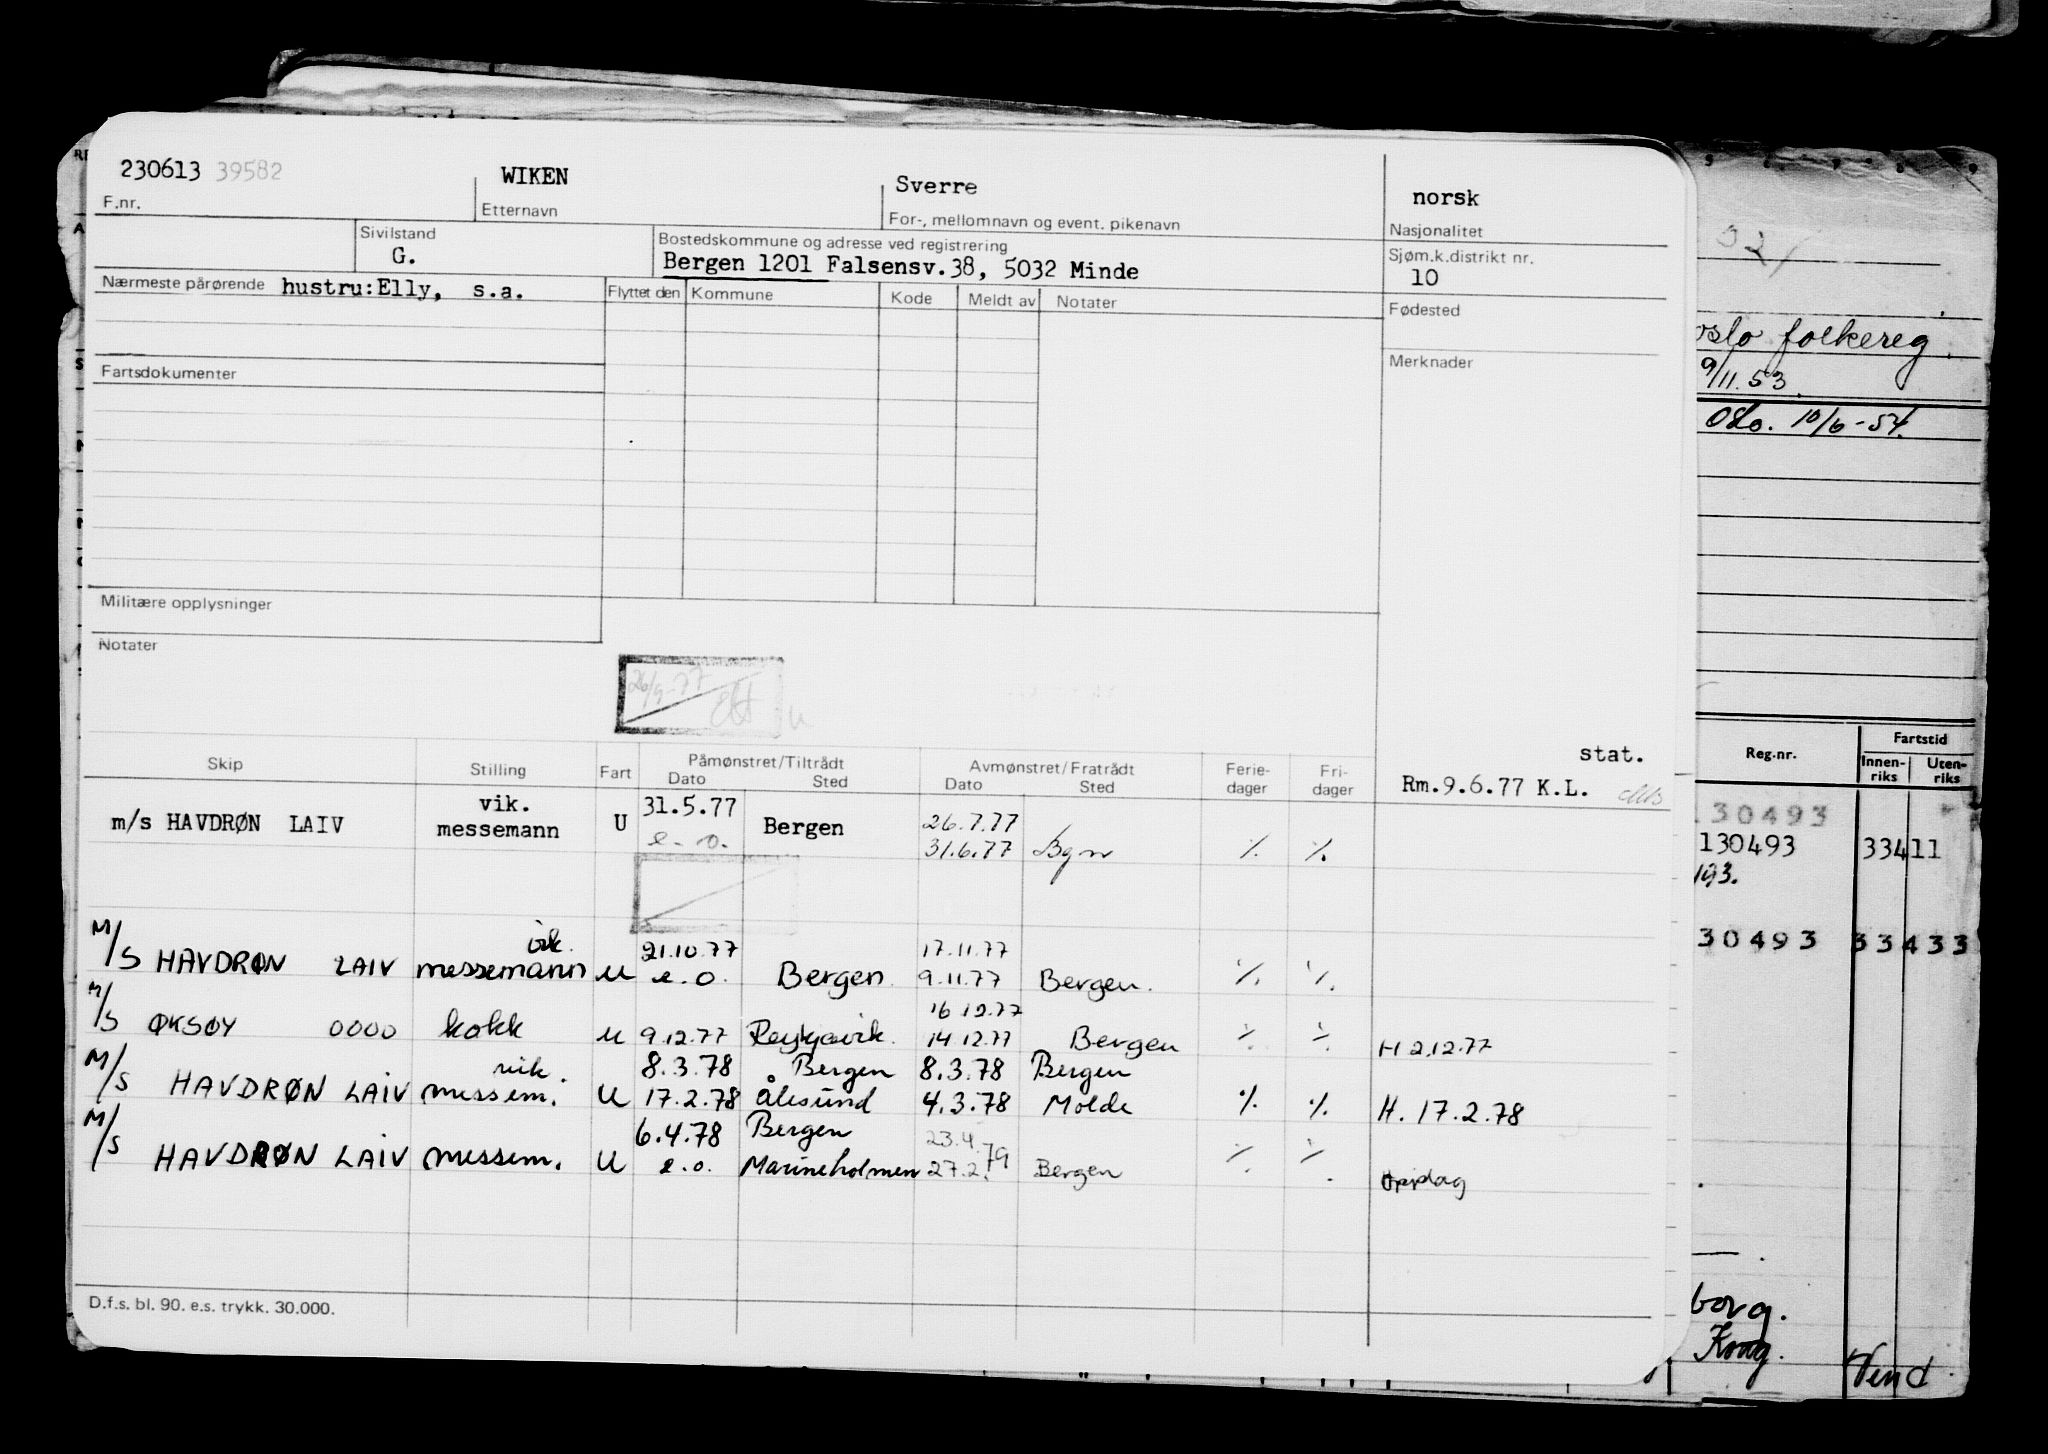 230613 39582
WIKEN
Sverre
norsk
F.nr.
Etternavn
For-, mellomnavn og event. pikenavn
Nasjonalitet
Sivilstand
G.
Bostedskommune og adresse ved registrering
Bergen 1201 Falsensv.38, 5032 Minde
Sjøm.k.distrikt nr.
10
Nærmeste pårørende hustru:Elly, s.a.
Flyttet den Kommune Kode Meldt av Notater
Fødested
Merknader
Fartsdokumenter
Militære opplysninger
Notater
26/9-77
stat.
Rm.9.6.77 K.L.
Skip Stilling Fart Påmønstret/Tiltrådt Avmønstret/Fratrådt Ferie-dager Fri-dager
Dato Sted Dato Sted
vik. 31.5.77
m/s HAVDRØN LAIV messemann U e.o. Bergen 26.7.77
31.6.77 Bgn % %
vik. 21.10.77 17.11.77
M/S HAVDRØN LAIV messemann U e.o. Bergen 9.11.77 Bergen. % %
16.12.77
M/S ØKSØY 0000 kokk U 9.12.77 Reykjavik 14.12.77 Bergen % % H 2.12.77
vik. 8.3.78 Bergen 8.3.78 Bergen
M/S HAVDRØN LAIV messem. U 17.2.78 Ålesund 4.3.78 Molde % % H. 17.2.78
6.4.78 Bergen 23.4.79
M/S HAVDRØN LAIV messem. U e.o. Marineholmen 27.2. Bergen % %
D.f.s. bl. 90. e.s. trykk. 30.000.
Oslo folkereg.
9/11.53.
Oslo. 10/6-54.
Reg.nr. Fartstid
Innen-riks Uten-riks
130493
130493 33411
193.
30493 33433
borg.
Vend